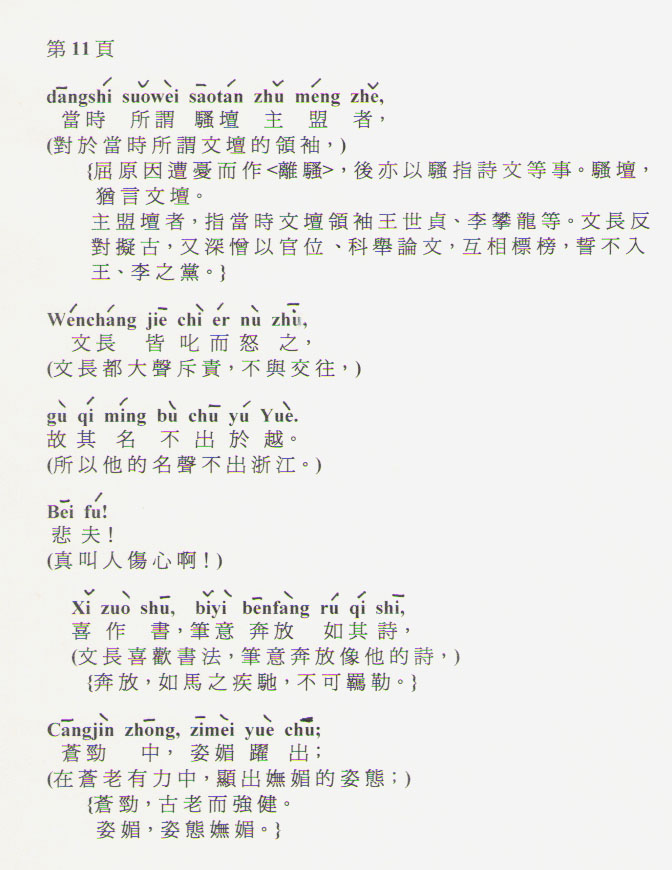 第 11 頁
dāngshí suǒwèi sāotán zhǔ méng zhě,
當時 所謂 騷壇 主 盟 者，
(對於當時所謂文壇的領袖，)
{屈原因遭憂而作<離騷>，後亦以騷指詩文等事。騷壇，
猶言文壇。
主盟壇者，指當時文壇領袖王世貞、李攀龍等。文長反
對擬古，又深憎以官位、科舉論文，互相標榜，誓不入
王、李之黨。}
Wéncháng jiē chì ér nù
文長 皆 叱 而 怒 之，
(文長都大聲斥責，不與交往，)
gù qí míng bù chū yú Yuè.
故 其 名 不 出 於 越。
(所以他的名聲不出浙江。)
Bēi fú!
悲 夫！
(真叫人傷心啊！)
Xǐ zuò shū, bǐyì bēnfàng rú qí shī,
喜 作 書，筆意 奔放 如其 詩，
(文長喜歡書法，筆意奔放像他的詩，)
{奔放，如馬之疾馳，不可羈勒。}
Cāngjìn zhōng, zīmèi yuè chū;
蒼勁 中，姿媚 躍 出；
(在蒼老有力中，顯出嫵媚的姿態；)
{蒼勁，古老而強健。
姿媚，姿態嫵媚。}